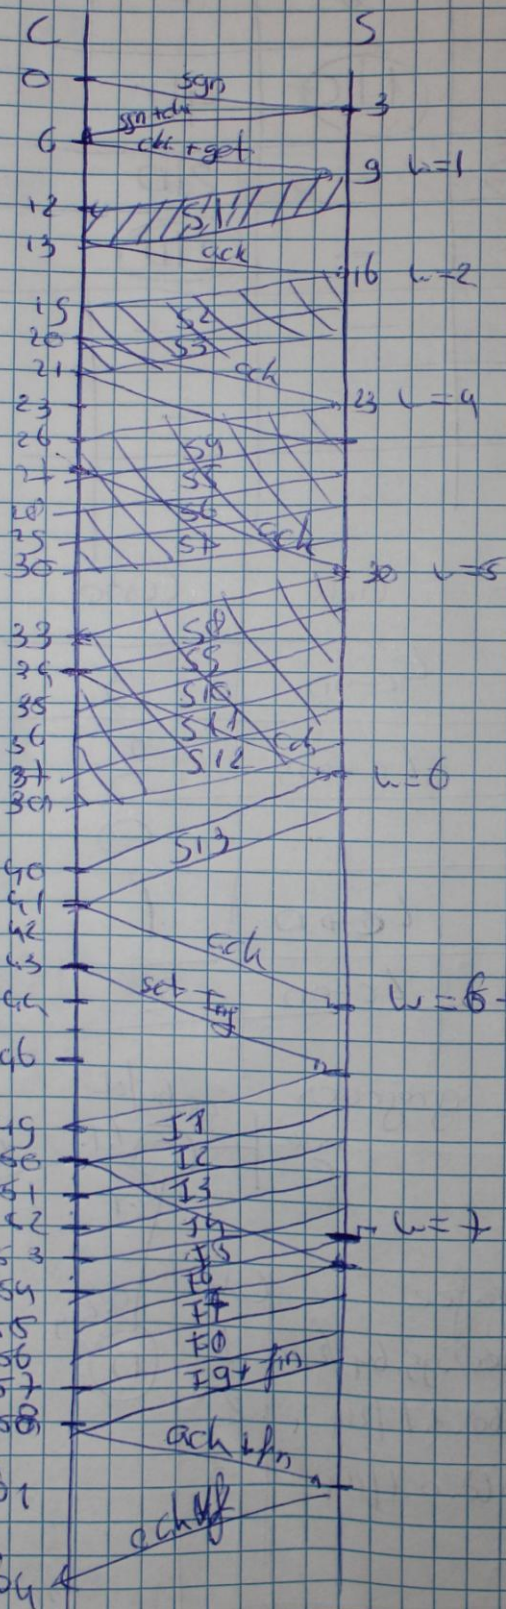 C S
0 syn
3
syn+ack
6 ack+get
9 w=1
12 S1
13 ack
16 w=2
15 S2
20 S3
21 ack
23 23 w=4
26 S4
27 S5
28 S6
29 S7 ack
30 30 w=5
33 S8
34 S9
35 S10
36 S11
37 S12 ack
w=6
40
41 S13
42
ack
43
44 w=6
46
49 I1
50 I2
51 I3
52 I4 w=7
53 I5
54 I6
55 I7
56 I8
57 I9+fin
58
ack+fin
61
64